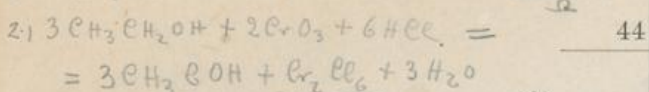 2.) 3 CH₃CH₂OH + 2CrO₃ + 6HCl. =
44
= 3CH₃COH + Cr₂Cl₆ + 3H₂O